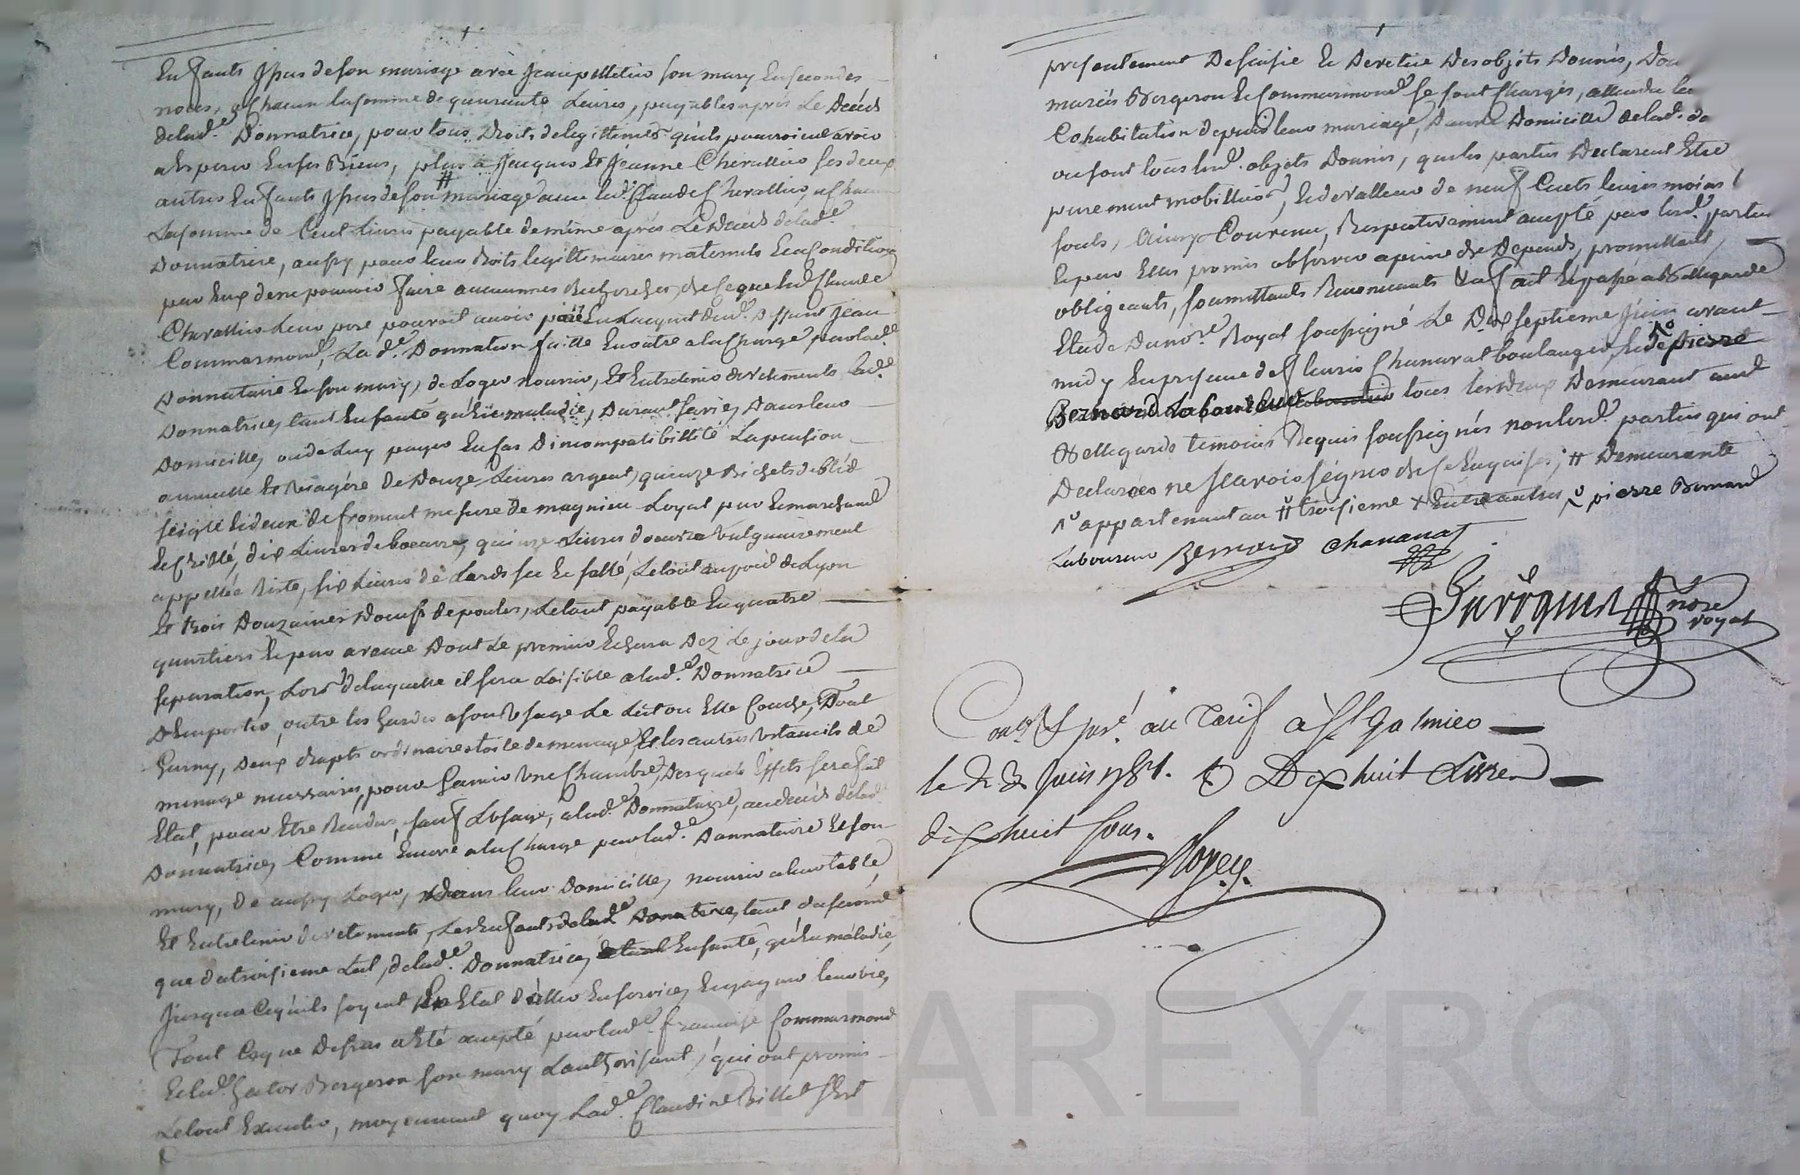 Enfants Jssus de son mariage avec Jean pelletier son mary En secondes
noces, a Chacun la somme de quarante Livres, payables après Le Decés
de lad.e Donnatrice, pour tous Droits de legittimes qu'ils pourroient avoir
a Esperer En ses Biens, plus a Jacques Et Jeanne Cherallier ses deux
autres Enfants Jssus de son # mariage avec led. Claude Cherallier, a Chacun
La somme de Cent Livres payable de même après Le Decés de lad.e
Donnatrice, aussy pour leur droits legittimaires maternels Et a Condition
par Eux de ne pouvoir faire aucunnes Recherches, de ce que led. Claude
Cherallier Leur pere pourroit avoir païé En Lacquit dud. Deffunt Jean
Commarmond, La d.e Donnation faitte En outre a la Charge par lad.e
Donnataire Et son mary, de Loger nourrir, Et Entretenir de vetements Lad.e
Donnatrice, tant En santé qu'En maladie, Durant sa vie, Dans leur
Domicille, ou de Luy payer En Cas Dincompatibillité La pension
annuelle Et Viagére De Douze Livres argent, quinze Bichets de bléd
seigle Et deux de froment mesure de magnieu Loyal pur Et marchand
Et Criblé, dix Livres de boeurre, quinze Livres d'oeuvre vulguairement
appellée Riste, six Livres de Lards sec Et sallé, Le tout au poid de Lyon
Et trois Douzaines D'oeufs de poules, Le tout payable En quatre
quartiers Et par avance Dont Le premier Echerra Dez Le jour de la
separation, Lors de laquelle il sera Loisible a lad.e Donnatrice
D'Emporter, outre les hardes a son Usage Le Lit ou Elle Couche, Tout
Garny, deux draps ordinaires toile de menage Et les autres Ustancils de
menage nessaires, pour Garnir Une Chambre, Desquels Effets sera fait
Etat, pour Etre Rendus, sauf L'Usage, a lad.e Donnataire, au decés de lad.
Donnatrice, Comme Encore a la Charge par lad.e Donnataire Et son
mary, de aussy Loger, Dans leur Domicille, nourrir a leur table,
Et Entretenir de vetements, Les Enfants de lad.e Donnatrice, tant du second
que du troisieme Lit, de lad.e Donnatrice, En santé, qu'En maladie,
Jusqua Ce qu'ils soyent En Etat d'aller En service, Et gagner leur vie,
Tout Ce que Dessus a Eté accepté par lad.e francoise Commarmond
Et led. hector Bergeron son mary L'authorisant, qui ont promis
Le tout Executer, moyennant quoy Lad.e Claudine Billet s'Est
presentement Desaisie Et Devetüe Des objets Donnés, Dou
mariés Bergeron Et Commarmond se sont Chargés, attendu leur
Cohabitation depuis leur mariage, dans le Domicille de lad. do
ou sont tous lesd. objets Donnés, que les parties Declarent Etre
purement mobilliers, Et de Valleur de neuf Cents livres moins
souls, Ainsy Convenu, Respectivement accepté par lesd. parties
Et par Elles promis observer a peine de Depends, promettants,
obligeants, soumettants Renoncants &a fait Et passé a Bellegarde
Etude Du no.re Royal soussigné Le Dix septieme Juin avant
midy En presence de sieurs Chananat boulanger, Et de pierre
Bernard Laboureur tous les deux Demeurant aud.
Bellegarde temoins Requis soussignés non lesd. parties qui ont
Declarées ne scavoir signer de Ce Enquises; # Demeurante
appartenant au # troisieme pierre Bernard
Laboureur Bernard Chananat
no.re royal
Con.lé & jns.é au Tarif à St Galmier
le 22 Juin 1781. Dix huit Livres
dix huit sous.